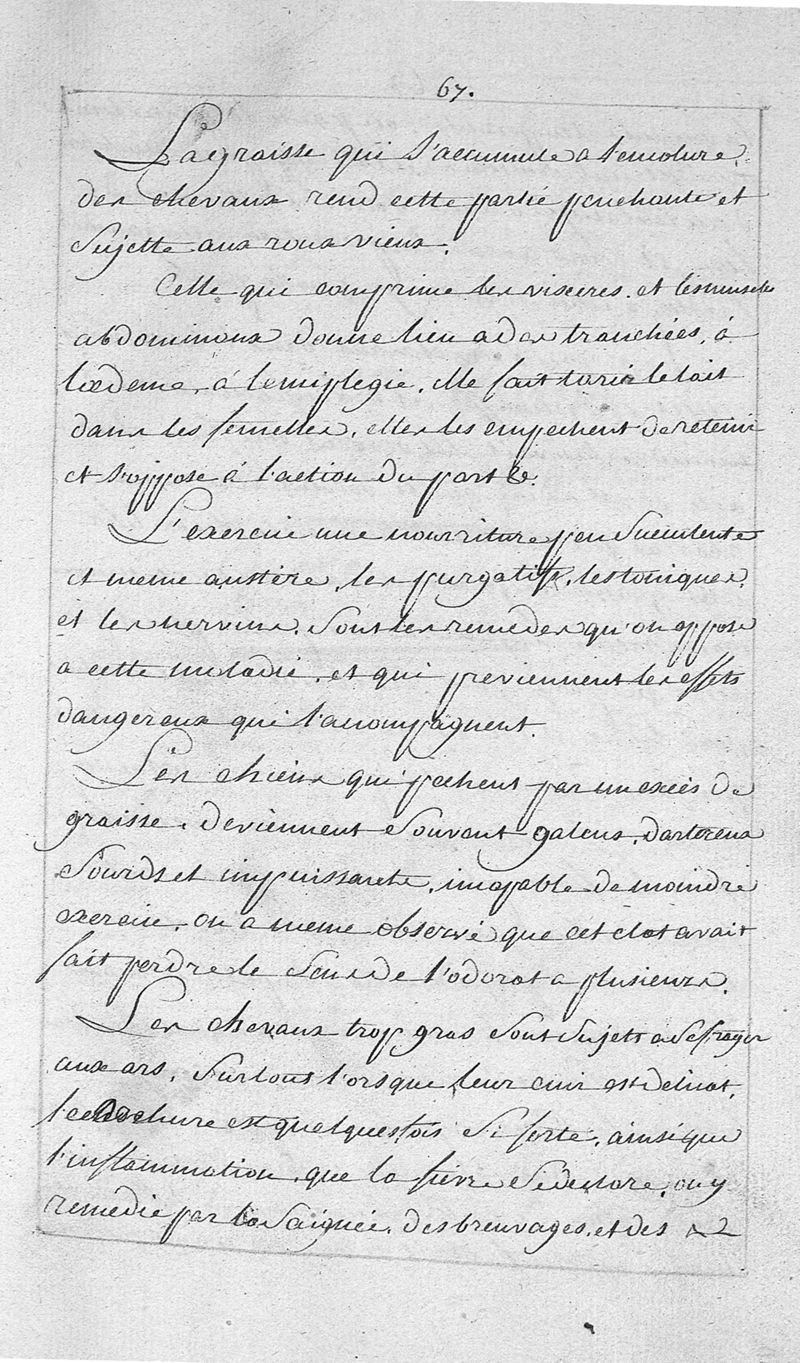 67.
La graisse qui s'accumule a l'encolure
des chevaux rend cette partie penchante et
sujette aux roux vieux.
Celle qui comprime les visceres. et les muscles
abdominaux donne lieu a des tranchées, à
l'œdeme, à l'emiplegie, elle fait tarir le lait
dans les femelles, elles les empechent de retenir
et s'oppose à l'action du part &.
L'exercice une nourriture peu succulente
et meme austère, les purgatifs, les toniques,
et les nervins, sont les remedes qu'on oppose
a cette maladie, et qui previennent les effets
dangereux qui l'accompagnent.
Les chiens qui pechent par un excès de
graisse, deviennent souvent galeux, dartreux
sourds et impuissants, incapable de moindre
exercice, on a meme observé que cet etat avait
fait perdre le sens de l'odorat a plusieurs.
Les chevaux trop gras sont sujets a se frayer
aux ars, surtout lorsque leur cuir est delicat,
est quelquefois si forte, ainsi que
l'inflammation, que la fievre se declare, on y
remedie par la saignée, des breuvages, et des